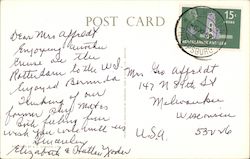 POST CARD
15c
NEDERLANDSE ANTILLEN
Dear Mrs Affeldt
Enjoying another
Cruise on the
Rotterdam to the W.I.
Enjoyed Bermuda
Thinking of our
former
and feeling fine
wish you
Sincerely
Elizabeth & Hallie Yoder
Mrs Geo Affeldt
147 N 87th St
Milwaukee
Wisconsin
U.S.A. 53226